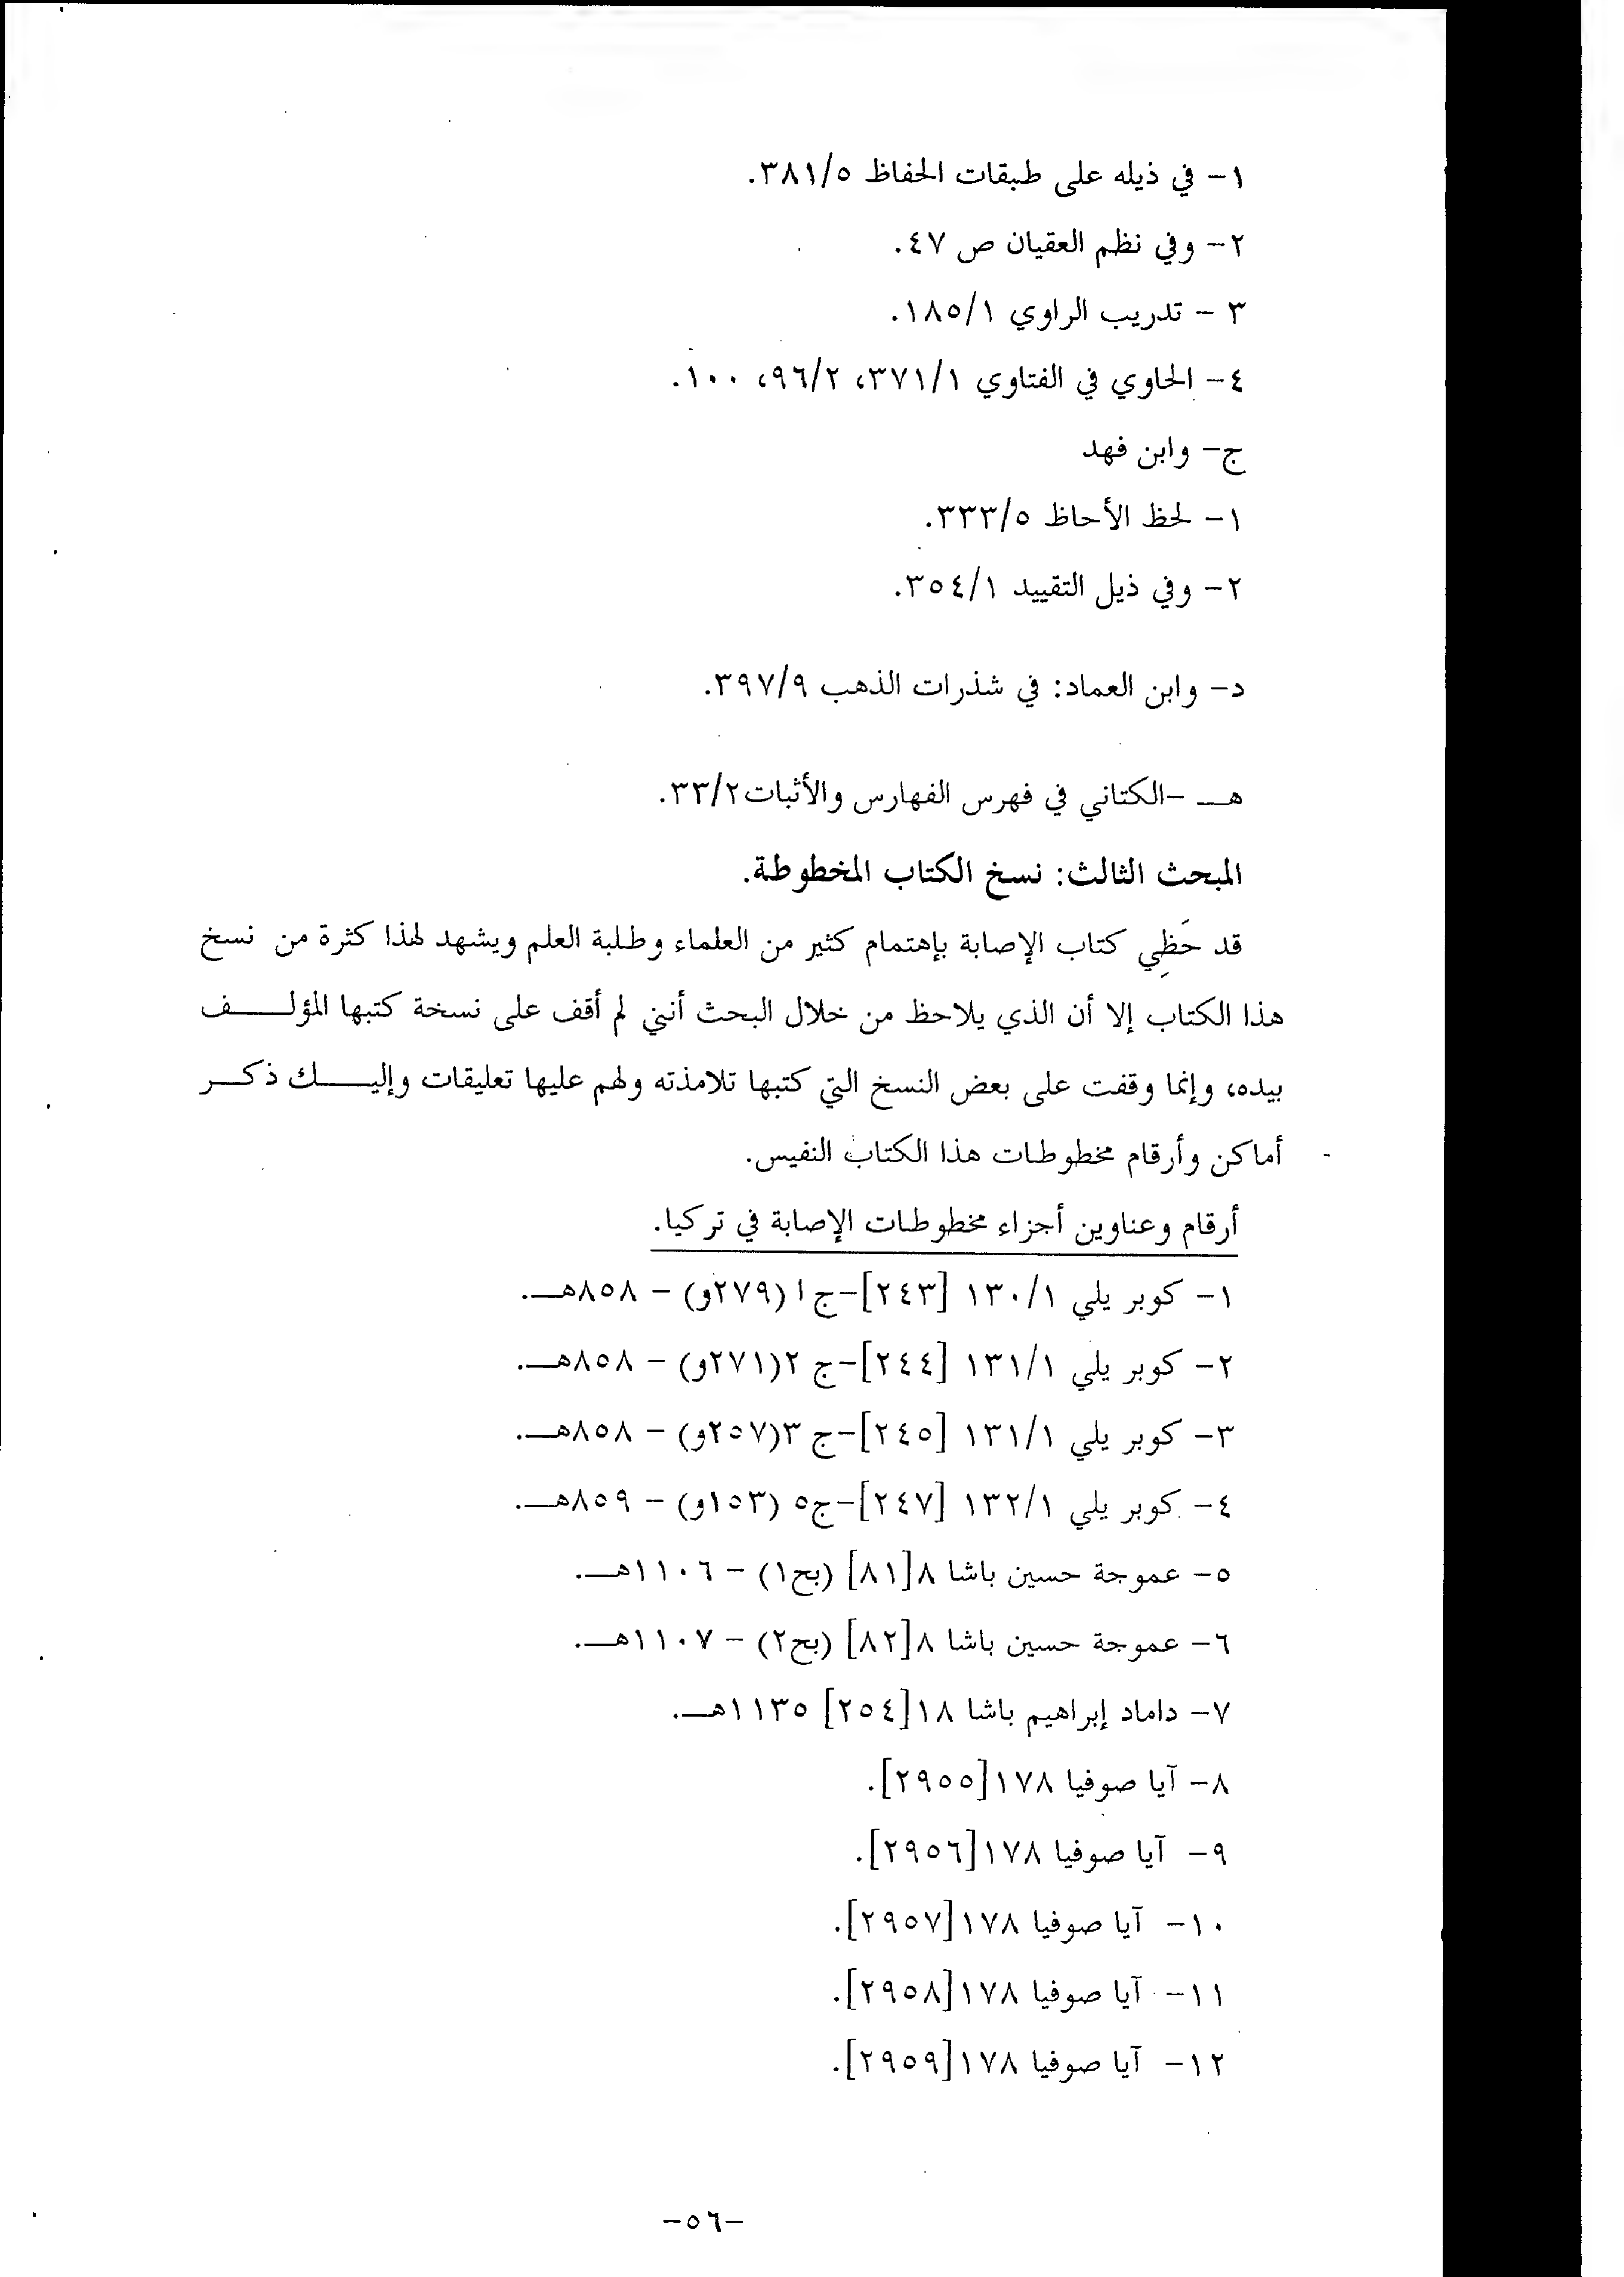 ١- في ذيله على طبقات الحفاظ ٣٨١/٥.
٢- وفي نظم العقيان ص ٤٧.
٣ - تدريب الراوي ١٨٥/١.
٤- الحاوي في الفتاوي ٣٧١/١، ٩٦/٢، ١٠٠.
ج- وابن فهد
١- لحظ الأحاظ ٣٣٣/٥.
٢- وفي ذيل التقييد ٣٥٤/١.
د- وابن العماد: في شذرات الذهب ٣٩٧/٩.
هـ -الكتاني في فهرس الفهارس والأثبات٣٣/٢.
المبحث الثالث: نسخ الكتاب المخطوطة.
قد حَظِي كتاب الإصابة بإهتمام كثير من العلماء وطلبة العلم ويشهد لهذا كثرة من نسخ
هذا الكتاب إلا أن الذي يلاحظ من خلال البحث أنني لم أقف على نسخة كتبها المؤلـــف
بيده، وإنما وقفت على بعض النسخ التي كتبها تلامذته ولهم عليها تعليقات وإليـــك ذكـــر
أماكن وأرقام مخطوطات هذا الكتاب النفيس.
أرقام وعناوين أجزاء مخطوطات الإصابة في تركيا.
١- كوبر يلي ١٣٠/١ [٢٤٣]-ج١ (٢٧٩و) - ٨٥٨هـ.
٢- كوبر يلي ١٣١/١ [٢٤٤]-ج ٢(٢٧١و) - ٨٥٨هـ.
٣- كوبر يلي ١٣١/١ [٢٤٥]-ج ٣(٢٥٧و) - ٨٥٨هـ.
٤- كوبر يلي ١٣٢/١ [٢٤٧]-ج٥ (١٥٣و) - ٨٥٩هـ.
٥- عموجة حسين باشا ٨[٨١] (بج١) - ١١٠٦هـ.
٦- عموجة حسين باشا ٨[٨٢] (بج٢) - ١١٠٧هـ.
٧- داماد إبراهيم باشا ١٨[٢٥٤] ١١٣٥هـ.
٨- آيا صوفيا ١٧٨[٢٩٥٥].
٩- آيا صوفيا ١٧٨[٢٩٥٦].
١٠- آيا صوفيا ١٧٨[٢٩٥٧].
١١- آيا صوفيا ١٧٨[٢٩٥٨].
١٢- آيا صوفيا ١٧٨[٢٩٥٩].
-٥٦-